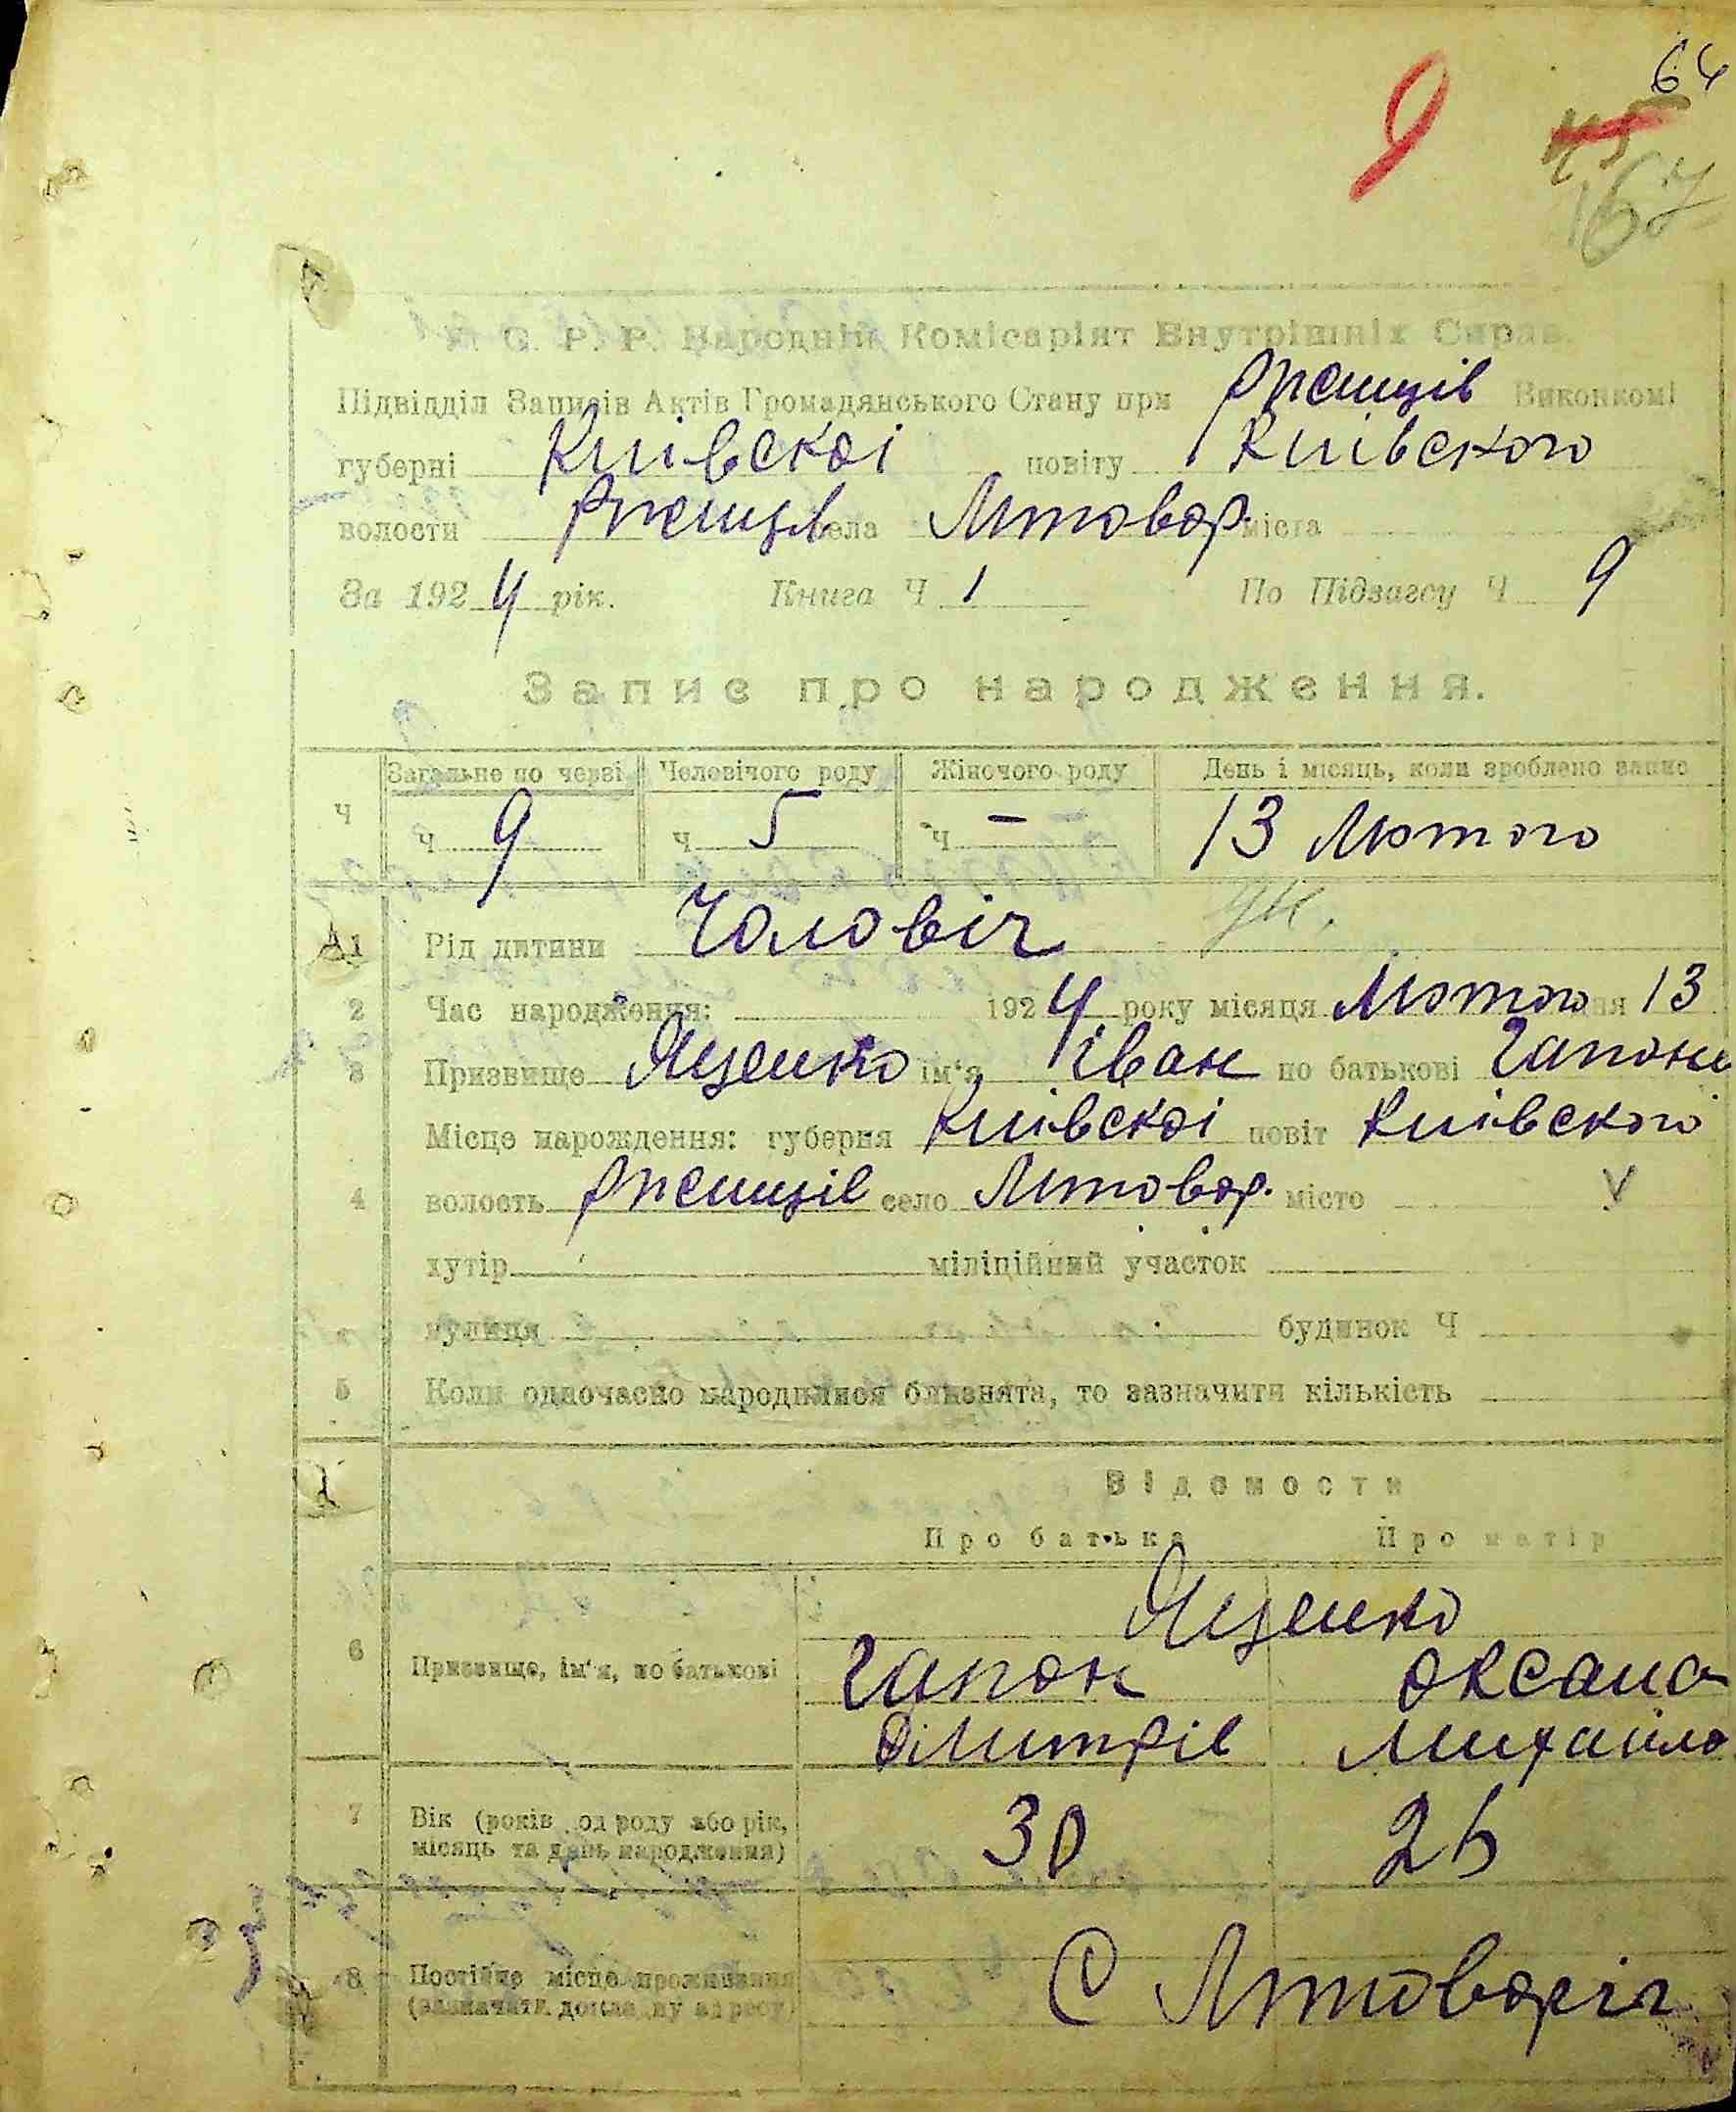 64
9
45
167
У. С. Р. Р. Народній Комісаріят Внутрішніх Справ.
Підвідділ Записів Актів Громадянського Стану при Ржищів Виконкомі
губерні Київскоі повіту Київского
волости Ржищів села Літовар. міста
За 1924 рік. Книга Ч 1 По Підзагсу Ч 9
Запис про народження.
Загальне по черзі Человічого роду Жіночого роду День і місяць, коли зроблено запис
Ч Ч 9 Ч 5 Ч — 13 Лютого
1 Рід дитини Чоловіч
2 Час народження: 1924 року місяця Лютого дня 13
3 Призвище Яценко ім'я Іван по батькові Гапонів
Місце народження: губерня Київскоі повіт Київского
4 волость Ржищів село Літовар. місто
хутір міліційний участок
вулиця будинок Ч
5 Коли одночасно народилися близнята, то зазначити кількість
Відомости
Про батька Про матір
Яценко
6 Призвище, ім'я, по батькові Гапон Оксана
Дімитрів Михайло
7 Вік (років од роду або рік, 30 26
місяць та день народження)
8 Постійне місце проживання С Літовари
(зазначити докладну адресу)